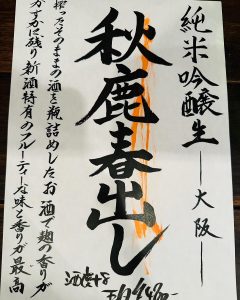 純米吟醸生―大阪―
秋鹿春出し
搾ったそのままの酒を瓶詰めしたお酒で麹の香りが
かすかに残り新酒特有のフルーティーな味と香りが最高
酒度+8